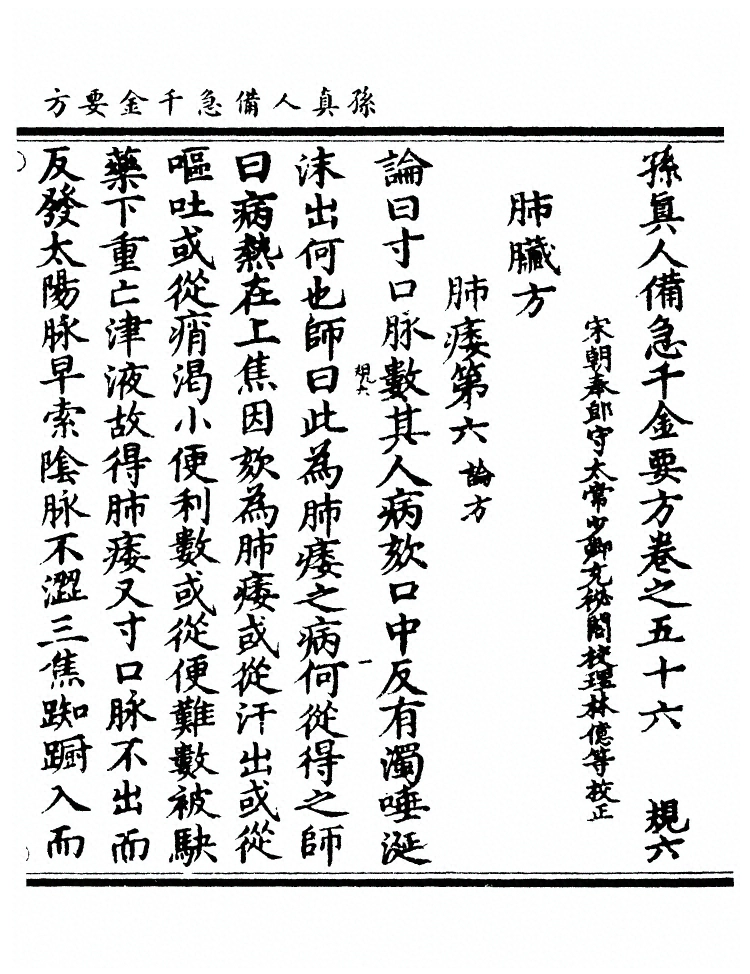 孫真人備急千金要方
孫真人備急千金要方卷之五十六 規六
宋朝奉郎守太常少卿充秘閣校理林億等校正
肺臟方
肺痿第六 論方
論曰寸口脉數其人病欬口中反有濁唾涎
規六
一
沫出何也師曰此為肺痿之病何從得之師
曰病熱在上焦因欬為肺痿或從汗出或從
嘔吐或從痟渴小便利數或從便難數被駃
藥下重亡津液故得肺痿又寸口脉不出而
反發太陽脉早索陰脉不澀三焦踟躕入而